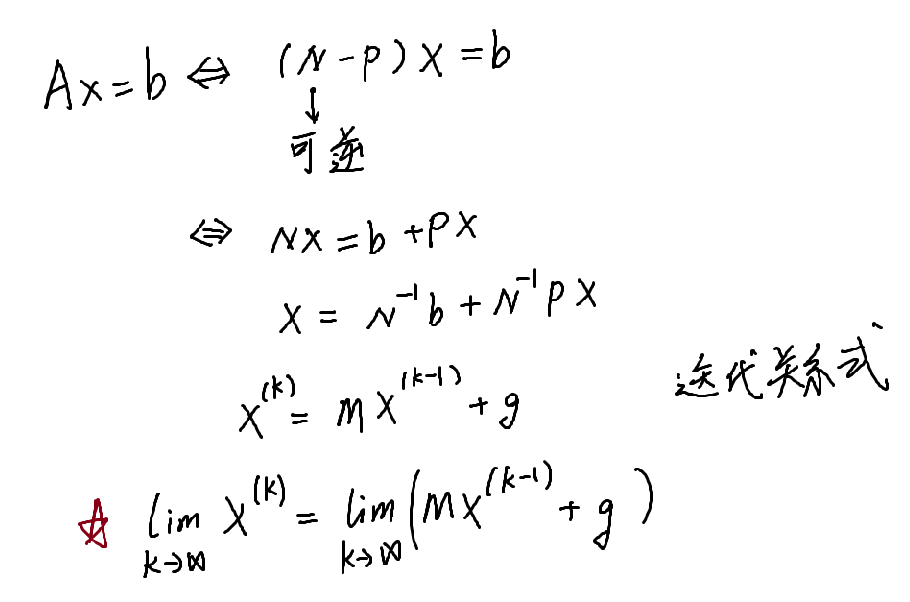 Ax=b ⇔ (N-P)X=b
↓
可逆
⇔ NX=b+PX
X = N⁻¹b+N⁻¹PX
X⁽ᵏ⁾= MX⁽ᵏ⁻¹⁾+g 迭代关系式
☆ lim X⁽ᵏ⁾= lim(MX⁽ᵏ⁻¹⁾+g)
k→∞ k→∞